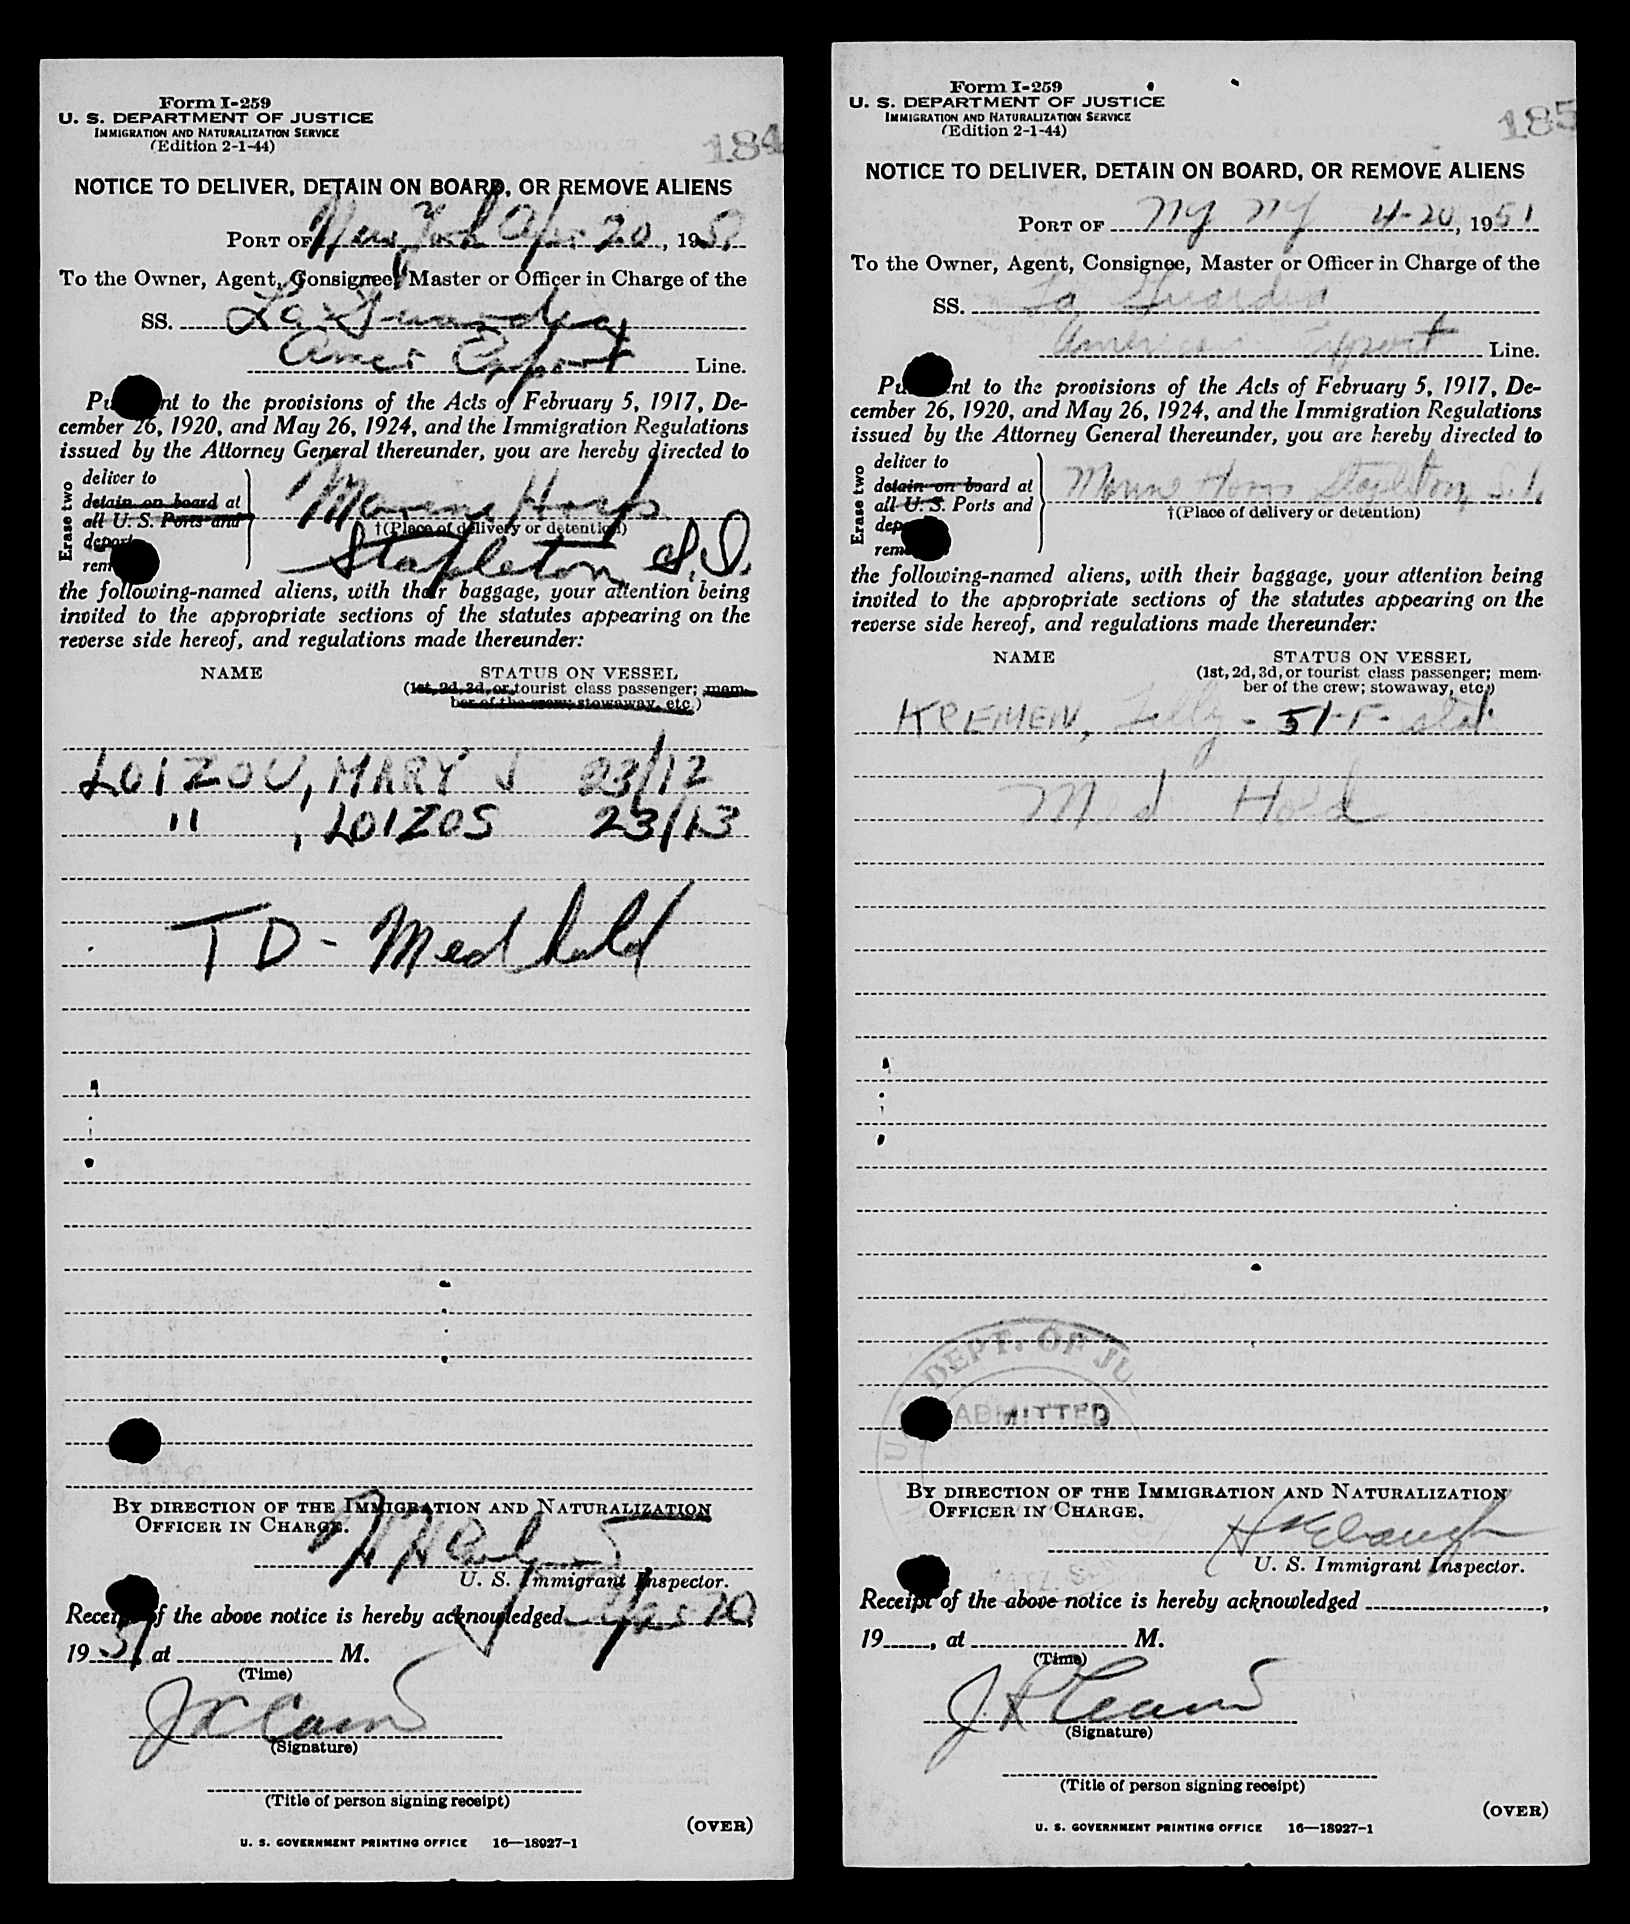 Form I-259
U. S. DEPARTMENT OF JUSTICE
IMMIGRATION AND NATURALIZATION SERVICE
(Edition 2-1-44)
184
NOTICE TO DELIVER, DETAIN ON BOARD, OR REMOVE ALIENS
PORT OF New York Apr 20, 1951
To the Owner, Agent, Consignee, Master or Officer in Charge of the
SS. La Guardia
Amer Export Line.
Pu nt to the provisions of the Acts of February 5, 1917, De-
cember 26, 1920, and May 26, 1924, and the Immigration Regulations
issued by the Attorney General thereunder, you are hereby directed to
Erase two
deliver to
detain on board at
all U. S. Ports and
deport
rem
Marine Hosp
†(Place of delivery or detention)
Stapleton, S.I.
the following-named aliens, with their baggage, your attention being
invited to the appropriate sections of the statutes appearing on the
reverse side hereof, and regulations made thereunder:
NAME STATUS ON VESSEL
(1st, 2d, 3d, or tourist class passenger; mem-
ber of the crew; stowaway, etc.)
LOIZOU, MARY J 23/12
" , LOIZOS 23/13
TD - Med hold
BY DIRECTION OF THE IMMIGRATION AND NATURALIZATION
OFFICER IN CHARGE.
U. S. Immigrant Inspector.
Receipt of the above notice is hereby acknowledged Apr 20,
1951, at M.
(Time)
(Signature)
(Title of person signing receipt)
(OVER)
U. S. GOVERNMENT PRINTING OFFICE 16—18927-1
Form I-259
U. S. DEPARTMENT OF JUSTICE
IMMIGRATION AND NATURALIZATION SERVICE
(Edition 2-1-44)
185
NOTICE TO DELIVER, DETAIN ON BOARD, OR REMOVE ALIENS
PORT OF NY NY 4-20, 1951
To the Owner, Agent, Consignee, Master or Officer in Charge of the
SS. La Guardia
American Export Line.
Pu nt to the provisions of the Acts of February 5, 1917, De-
cember 26, 1920, and May 26, 1924, and the Immigration Regulations
issued by the Attorney General thereunder, you are hereby directed to
Erase two
deliver to
detain on board at
all U. S. Ports and
dep
rem
Stapleton, S.I.
†(Place of delivery or detention)
the following-named aliens, with their baggage, your attention being
invited to the appropriate sections of the statutes appearing on the
reverse side hereof, and regulations made thereunder:
NAME STATUS ON VESSEL
(1st, 2d, 3d, or tourist class passenger; mem-
ber of the crew; stowaway, etc.)
KREMEN, Lilly - 51-F-
Med Hold
DEPT. OF JU
ADMITTED
BY DIRECTION OF THE IMMIGRATION AND NATURALIZATION
OFFICER IN CHARGE.
U. S. Immigrant Inspector.
Receipt of the above notice is hereby acknowledged ,
19 , at M.
(Time)
(Signature)
(Title of person signing receipt)
(OVER)
U. S. GOVERNMENT PRINTING OFFICE 16—18927-1